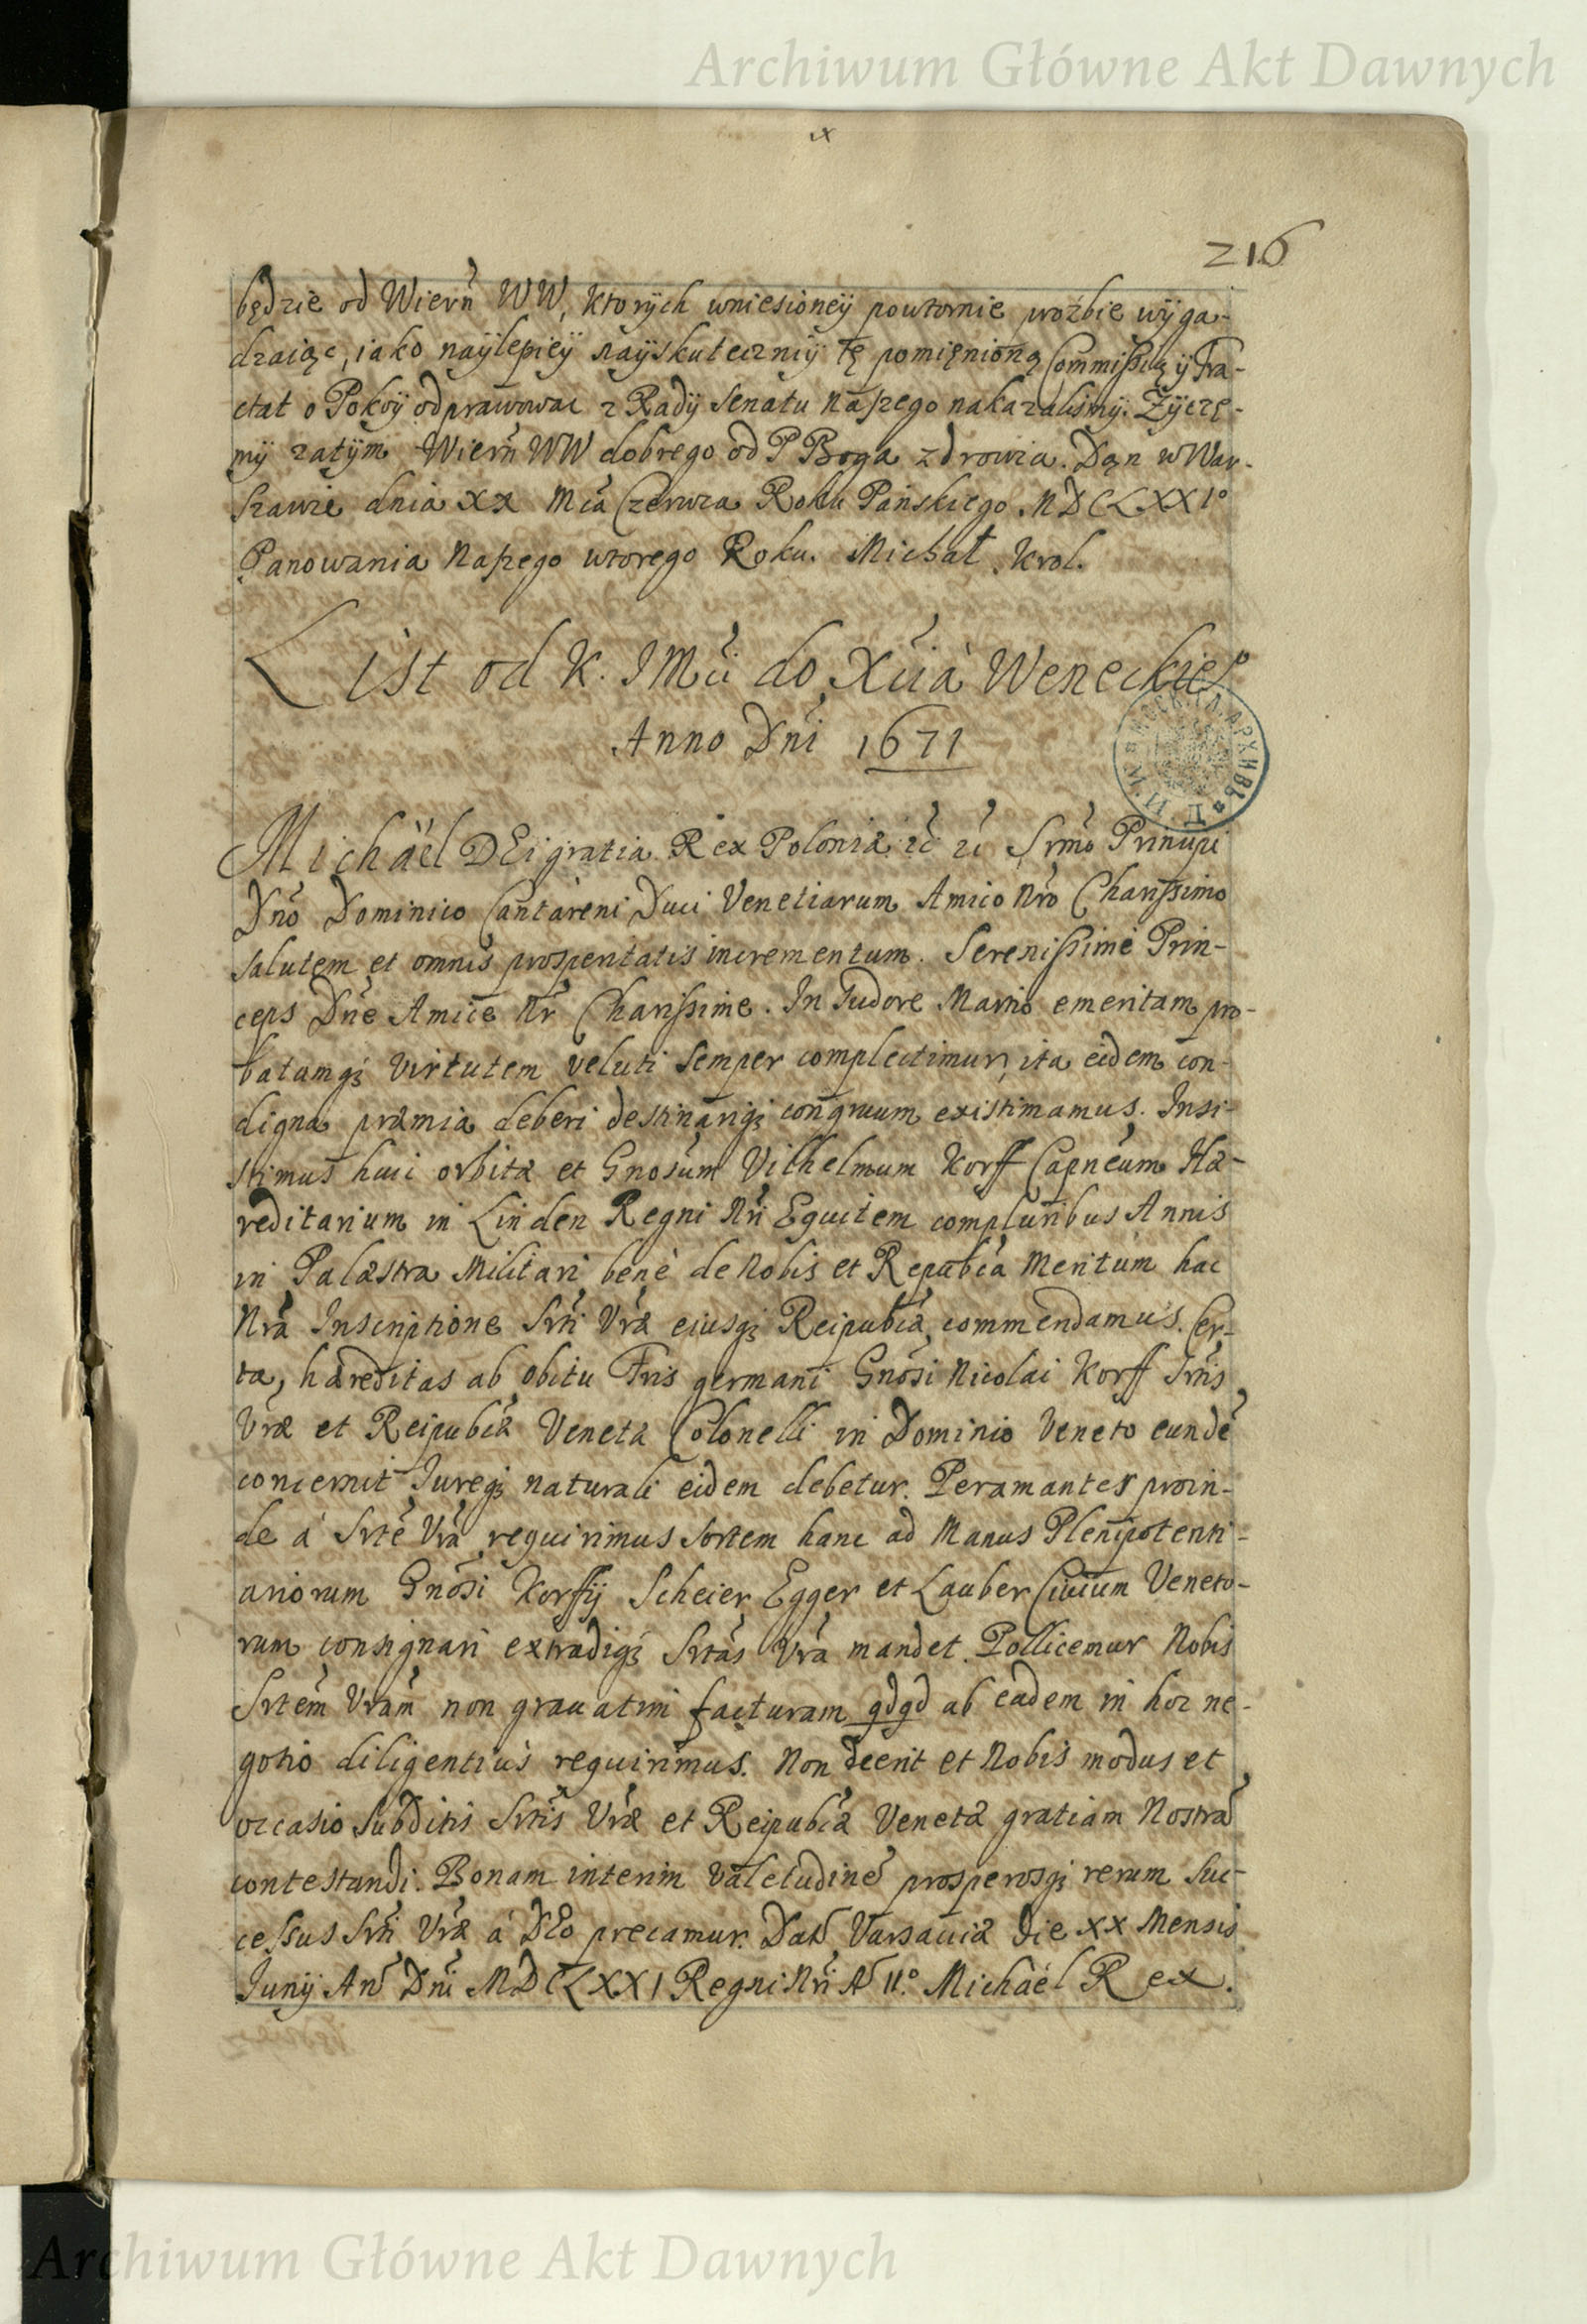 Archiwum Główne Akt Dawnych
x
216
będzie od Wiern̄ WW, ktorÿch wniesioneÿ powtornie proźbie wÿga-
dzaiąc, iako naÿlepieÿ naÿskutecznÿ tę pomięnioną Commissią ÿ Tra-
ctat o Pokoÿ odprawowac z Radÿ Senatu naszego nakazalismÿ. Zÿczę-
mÿ zatÿm Wiern̄ WW dobrego od P Boga zdrowia. Dąn w War-
szawie dnia xx Mca Czerwca Roku Pańskiego MDCLXXIº
Panowania naszego wtorego Roku. Michał Krol.
List od K. JMći do Xćia Weneckieº
Anno Dn̄i 1671
Michäel DEi gratia Rex Poloniæ ꝛc̄ ꝛc̄ Srmō Principi
Dnō Dominico Cantareni Duci Venetiarum Amico Nrō Charissimo
salutem et omnis prosperitatis incrementum. Serenissime Prin-
ceps Dnē Amice Nr̄ Charissime. In Tudore Marino emeritam pro-
batamqȝ virtutem veluti semper complectimur, ita eidem con-
digna præmia deberi destinariqȝ congruum existimamus. Insi-
stimus huic orbitæ et Gnosum Vilhelmum Korff Capneum Hæ-
reditarium in Linden Regni Nr̄i Equitem compluribus Annis
in Palæstra Militari benè de Nobis et Repubcā Meritum hac
Nrā Inscriptione Srt̄i Vrǣ eiusqȝ Reipubcǣ commendamus. Cer-
ta, hæreditas ab obitu Fris germani Gnosi Nicolai Korff Srtis
Vrǣ et Reipubcǣ Venetæ Colonelli in Dominio Veneto eundē
concernit Jureqȝ naturali eidem debetur. Peramanter proin-
de á Srtē Vrā requirimus sortem hanc ad Manus Plenipotenti-
ariorum Gnosi Korffij Scheier Egger et Lauber Civium Veneto-
rum consignari extradiqȝ Srtās Vrā mandet. Pollicemur Nobis
Srtēm Vrām non gravatim facturam qdqd ab eadem in hoc ne-
gotio diligentius requirimus. Non deerit et Nobis modus et
occasio subditis Srtis Vrǣ et Reipubcǣ Venetæ gratiam Nostrā
contestandi. Bonam interim valetudinē prosperosqȝ rerum suc-
cessus Srt̄i Vrǣ á DEo precamur. Dat̄ Varsaviæ die xx Mensis
Junij An̄ Dn̄i MDCLXXI Regni Nr̄i A̅ IIº. Michäel Rex.
Archiwum Główne Akt Dawnych